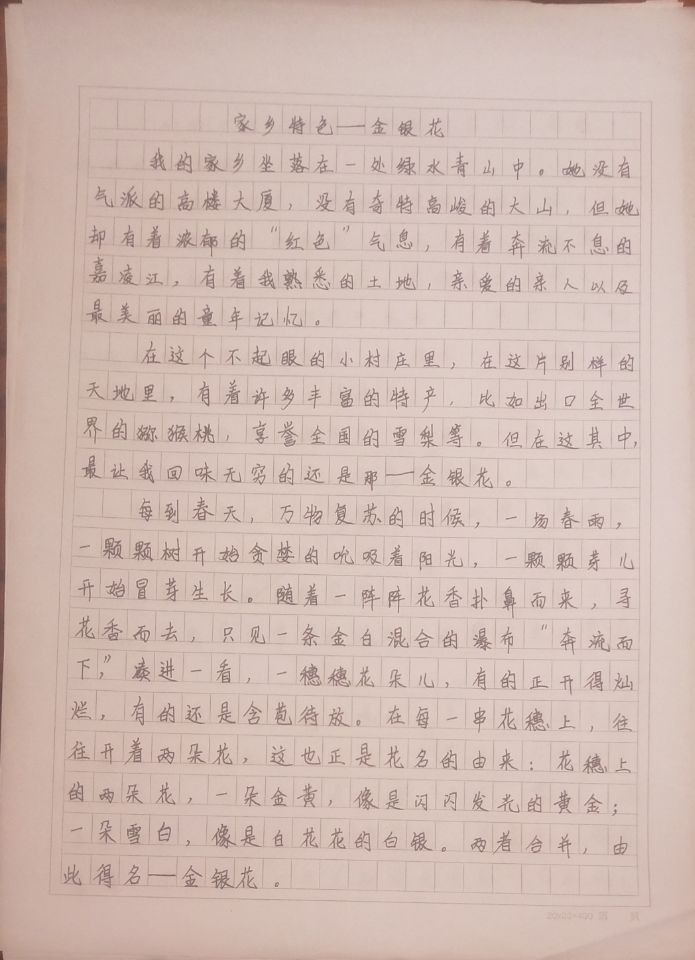 家乡特色——金银花
我的家乡坐落在一处绿水青山中。她没有
气派的高楼大厦，没有奇特高峻的大山，但她
却有着浓郁的“红色”气息，有着奔流不息的
嘉凌江，有着我熟悉的土地，亲爱的亲人以及
最美丽的童年记忆。
在这个不起眼的小村庄里，在这片别样的
天地里，有着许多丰富的特产，比如出口全世
界的猕猴桃，享誉全国的雪梨等。但在这其中，
最让我回味无穷的还是那——金银花。
每到春天，万物复苏的时候，一场春雨，
一颗颗树开始贪婪的吮吸着阳光，一颗颗芽儿
开始冒芽生长。随着一阵阵花香扑鼻而来，寻
花香而去，只见一条金白混合的瀑布“奔流而
下，”凑进一看，一穗穗花朵儿，有的正开得灿
烂，有的还是含苞待放。在每一串花穗上，往
往开着两朵花，这也正是花名的由来：花穗上
的两朵花，一朵金黄，像是闪闪发光的黄金；
一朵雪白，像是白花花的白银。两者合并，由
此得名——金银花。
20×20=400 第 页